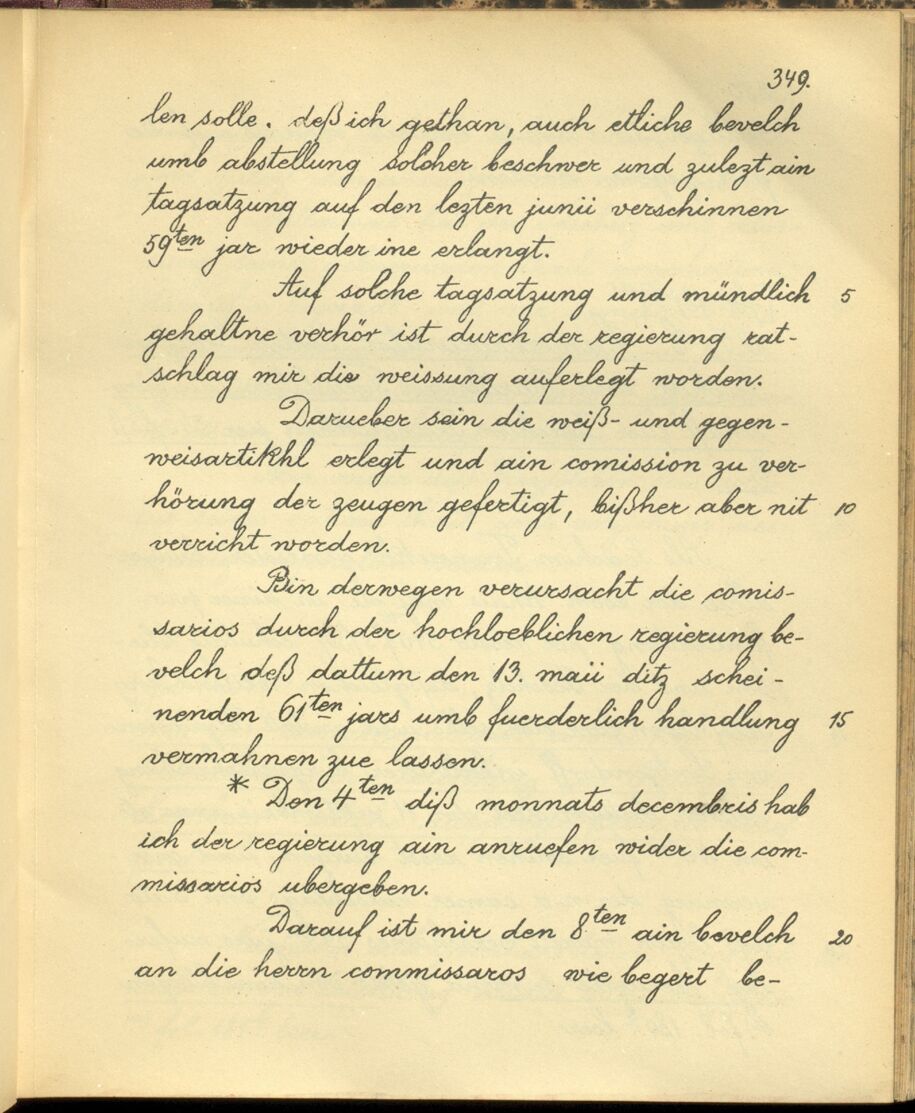 349.
len solle. deß ich gethan, auch etliche bevelch
umb abstellung solcher beschwer und zulezt ain
tagsatzung auf den lezten junii verschinnen
59ten jar wieder ine erlangt.
Auf solche tagsatzung und mündlich 5
gehaltne verhör ist durch der regierung rat-
schlag mir die weissung auferlegt worden.
Darueber sein die weiß- und gegen-
weisartikhl erlegt und ain comission zu ver-
hörung der zeugen gefertigt, bißher aber nit 10
verricht worden.
Bin derwegen verursacht die comis-
sarios durch der hochloeblichen regierung be-
velch deß dattum den 13. maii ditz schei-
nenden 61ten jars umb fuerderlich handlung 15
vermahnen zue lassen.
* Den 4ten diß monnats decembris hab
ich der regierung ain anruefen wider die com-
missarios ubergeben.
Darauf ist mir den 8ten ain bevelch 20
an die herrn commissaros wie begert be-